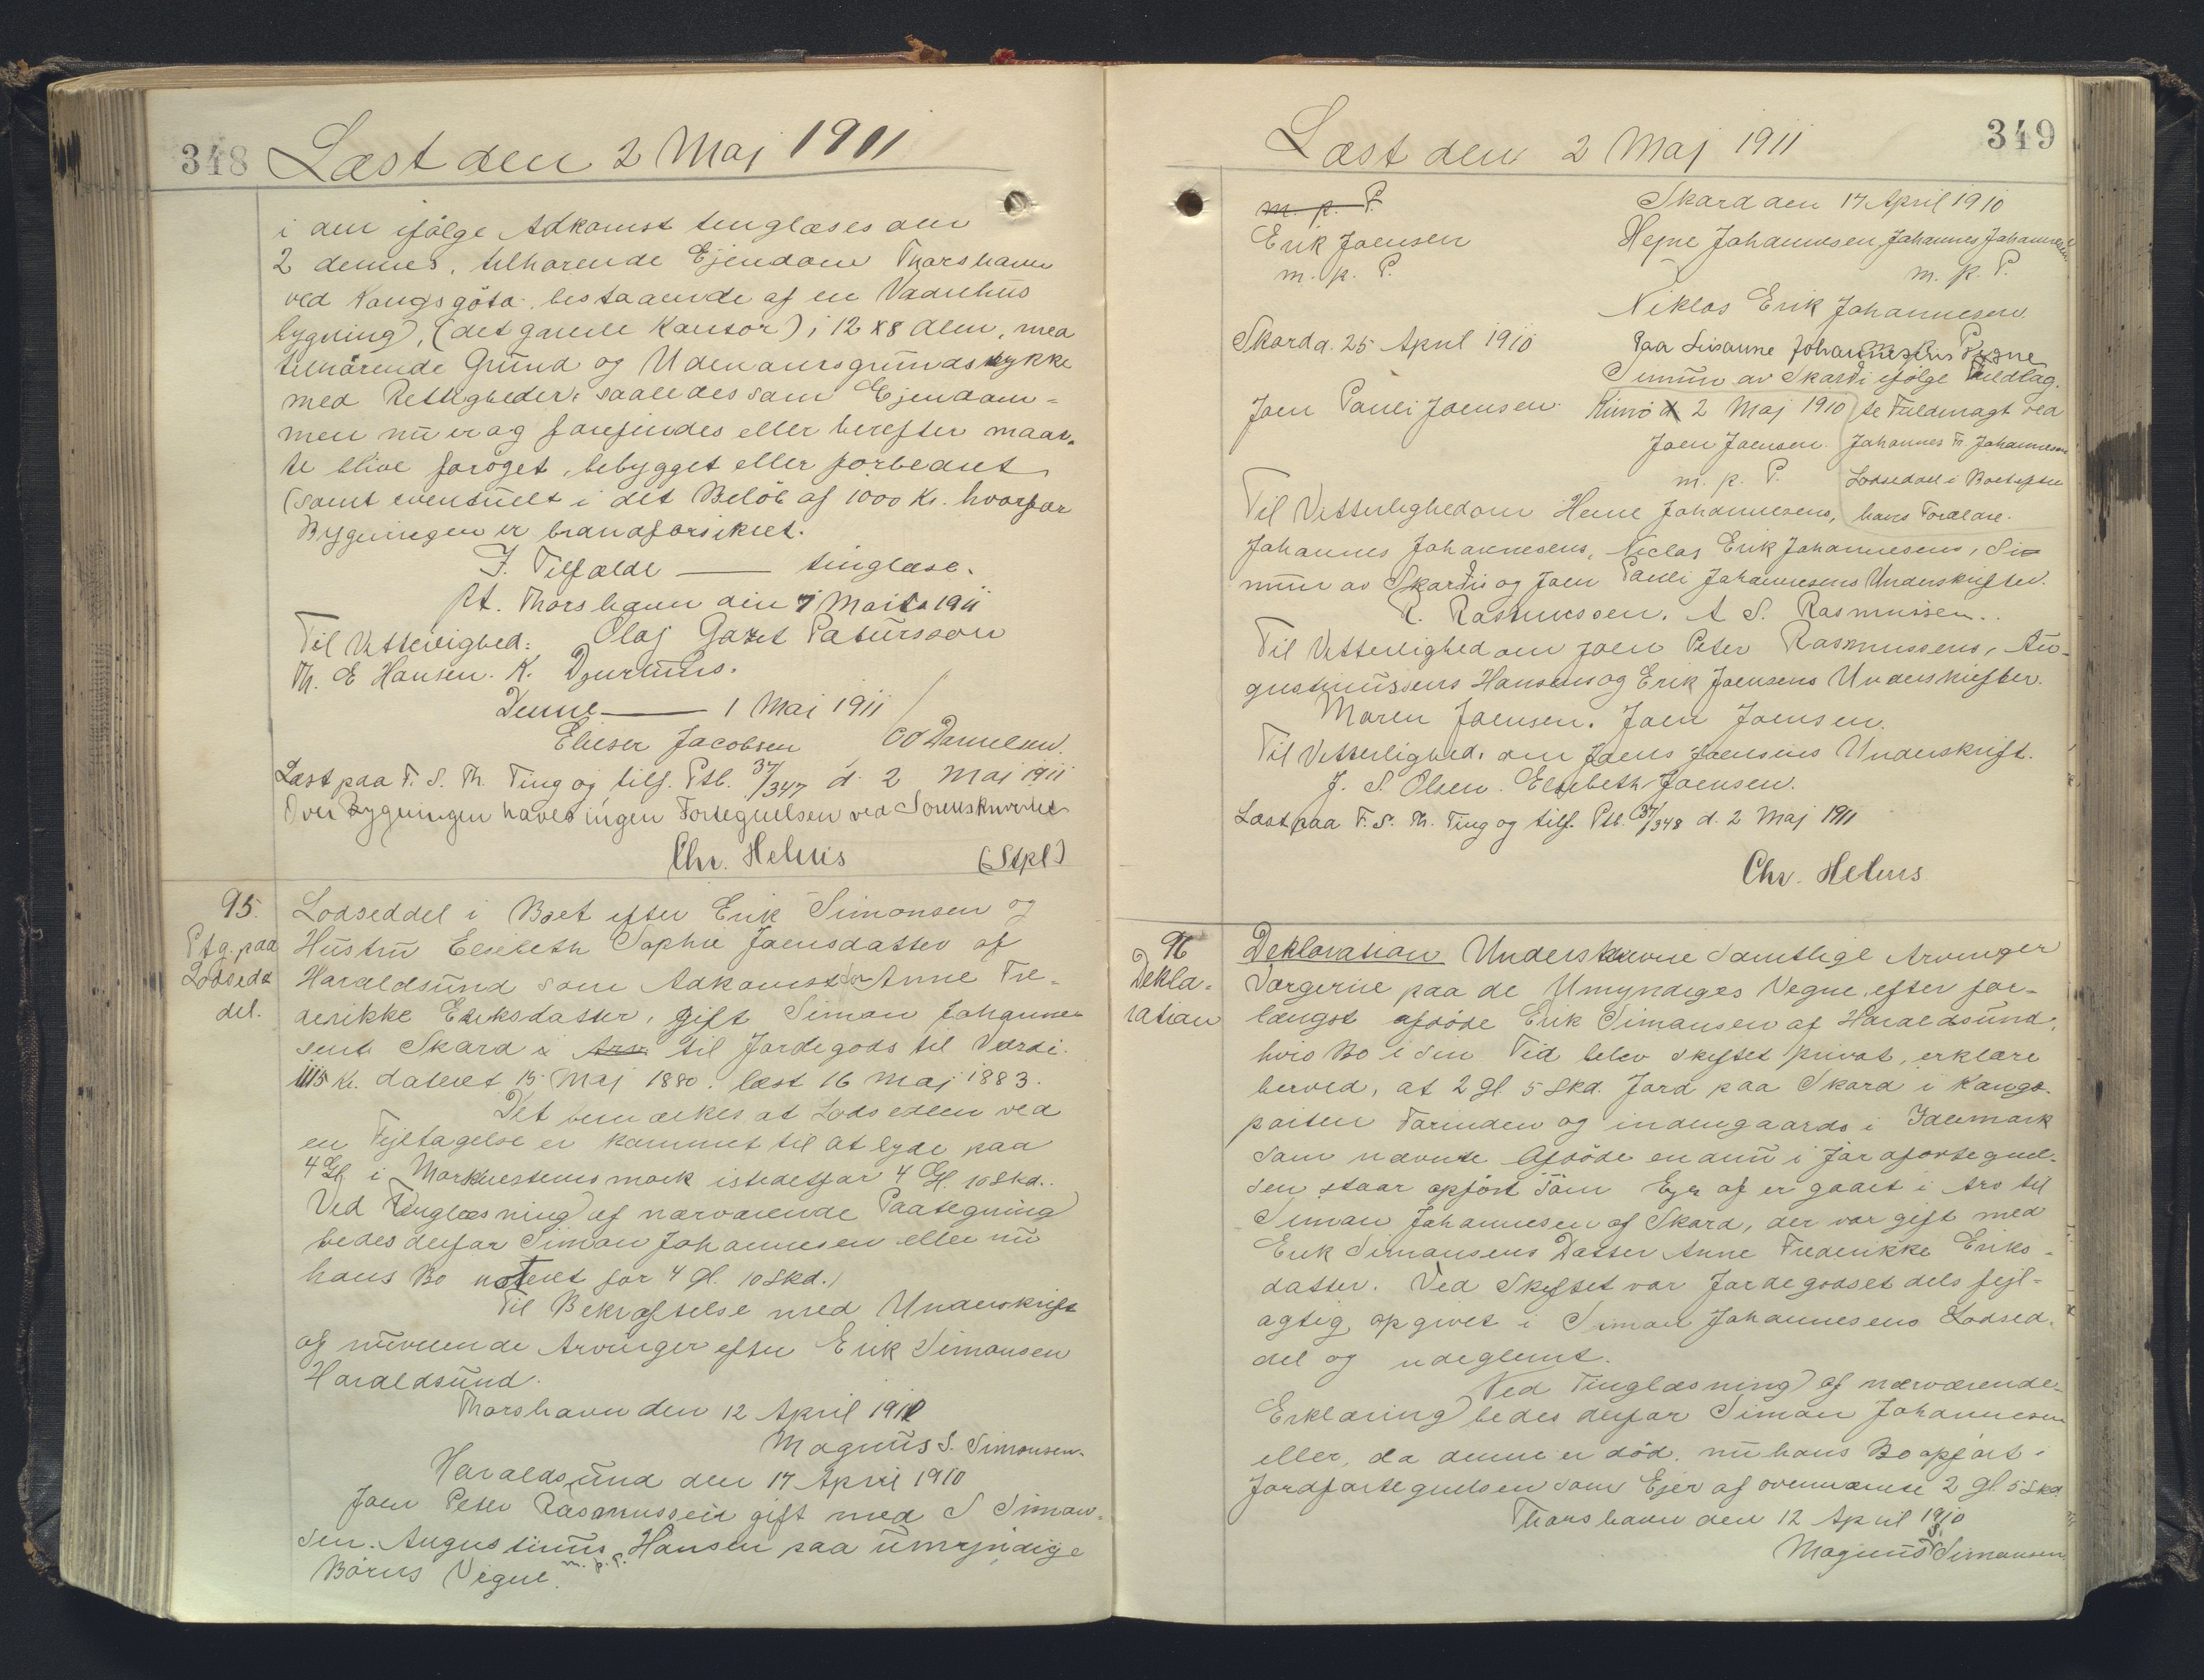 348 Læst den 2 Maj 1911
i den ifølge Adkomst tinglæses den
2 dennes, tilhørende Ejendom Thorshavn
ved Kongsgöta bestaaende af en Vaanhus
bygning, (det gamle Kontor) i 12 x 8 Alen, med
tilhörende Grund og Udenomsgrundstykke
med Rettigheder, saaledes som Ejendom-
men nu er og forefindes eller herefter maat-
te blive foröget, bebygget eller forbedret
(samt eventuelt i det Belöb af 1000 Kr. hvorfor
Bygningen er brandforsikret.
I. Tilfælde —— tinglæse.
pt. Thorshavn den 1 Maits 1911
Til Vitterlighed: Olaf Gazet Patursson
Th. E Hansen. K. Djurhuus.
Denne —— 1 Mai 1911
Elieser Jacobsen CO Danielsen.
Læst paa F. S. Th. Ting og tilf. Ptb. 37/347 d. 2 Maj 1911
Over Bygningen haves ingen Fortegnelsen ved Sorenskriveriet
Chr. Helms (Stpl)
95.
Ptg. paa
Lodsed=
del.
Lodseddel i Boet efter Erik Simonsen og
Hustru Elsebeth Sophie Joensdatter af
Haraldsund som Adkomst for Anne Fre-
derikke Eriksdatter, gift Simon Johanne
sens Skard x Arv til Jordegods til Værdi.
1115 Kr. dateret 15 Maj 1880. læst 16 Maj 1883.
Det bemærkes at Lodsedlen ved
en Fejltagelse er kommet til at lyde paa
4 Gl. i Marknestensmark istedetfor 4 Gl. 10 Skd..
Ved Tinglæsning af nærværende Paategning
bedes derfor Simon Johannesen eller nu
hans Bo noteret for 4 Gl. 10 Skd.
Til Bekræftelse med Underskrift
af nuværende Arvinger efter Erik Simonsen
Haraldsund.
Thorshavn den 12 April 1910
Magnus S. Simonsen.
Haraldsund den 17 April 1910
Joen Peter Rasmussen gift med S Simon-
sen. Augustinus Hansen paa umyndige
m. p. P.
Börns Vegne.
Læst den 2 Maj 1911 349
m. p. P. Skard den 17 April 1910
Erik Joensen Hejne Johannesen, Johannes Johannesen
m. p. P. m. p. P.
Niklas Erik Johannesen
Skard d. 25 April 1910 Paa Susanne Johannesens Vegne
Simun av Skardi ifølge fuldtag.
Joen Pauli Joensen. Kunö d 2 Maj 1910 te Fuldmagt ved
Joen Joensen. Johannes Fr. Johannesen
m. p. P. Lodseddel i Boet efter
Til Vitterlighed om Heine Johannesens, hans Forældre.
Johannes Johannesens, Niclas Erik Johannesens, Si=
mun av Skardis og Joen Pauli Johannesens Underskrifter.
R. Rasmussen. A S. Rasmussen..
Til Vitterlighed om Joen Peter Rasmussens, Au-
gustinussens Hansens og Erik Joensens Underskrifter.
Maren Joensen. Joen Joensen.
Til Vitterlighed, om Joens Joensens Underskrift.
J. S. Olsen. Elsebeth Joensen.
Læst paa F. S. Th. Ting og tilf. Ptb. 37/348 d. 2 Maj 1911
Chr. Helms
96
Dekla=
ration
Deklaration Underskrevne samtlige Arvinger
Værgerne paa de Umyndiges Vegne, efter for-
længst afdöde Erik Simonsen af Haraldsund,
hvis Bo i sin Tid blev skiftet privat, erklære
herved, at 2 Gl. 5 Skd. Jord paa Skard i Kongs-
parten Farinden og indengaards i Idenmark
som nævnte Afdöde endnu i Jordfortegnel-
sen staar opfört som Ejer af er gaaet i Arv til
Simon Johannesen af Skard, der var gift med
Erik Simonsens Datter Anne Frederikke Eriks-
datter. Ved Skiftet var Jordegodset dels fejl-
agtig opgivet i Simon Johannesens Lodsed-
del og udeglemt.
Ved Tinglæsning af nærværende
Erklæring bedes derfor Simon Johannesen
eller, da denne er död, nu hans Bo opfört i
Jordfortegnelsen som Ejer af ovennævnte 2 Gl 5 Skd
Thorshavn den 12 April 1910
Magnus S. Simonsen